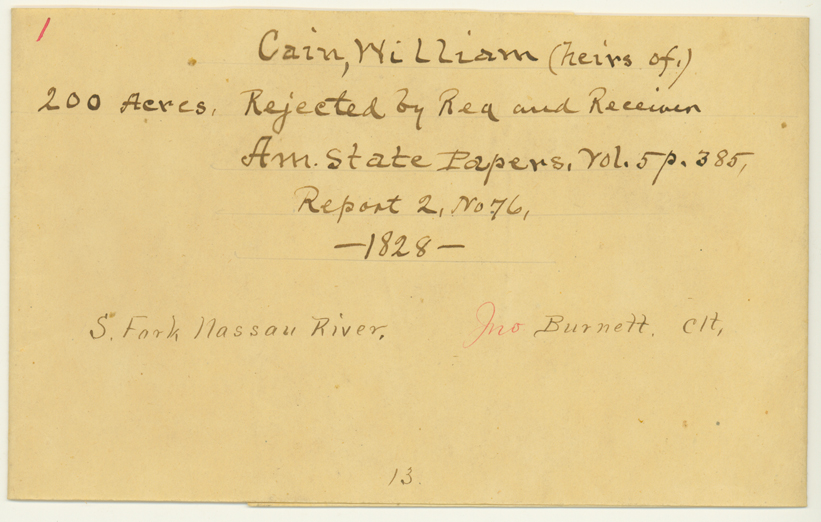 1
Cain, William (heirs of.)
200 Acres, Rejected by Reg and Receiver
Am. State Papers, Vol. 5 p. 385,
Report 2, No 76,
—1828—
S. Fork Nassau River. Jno Burnett. Clt,
13.